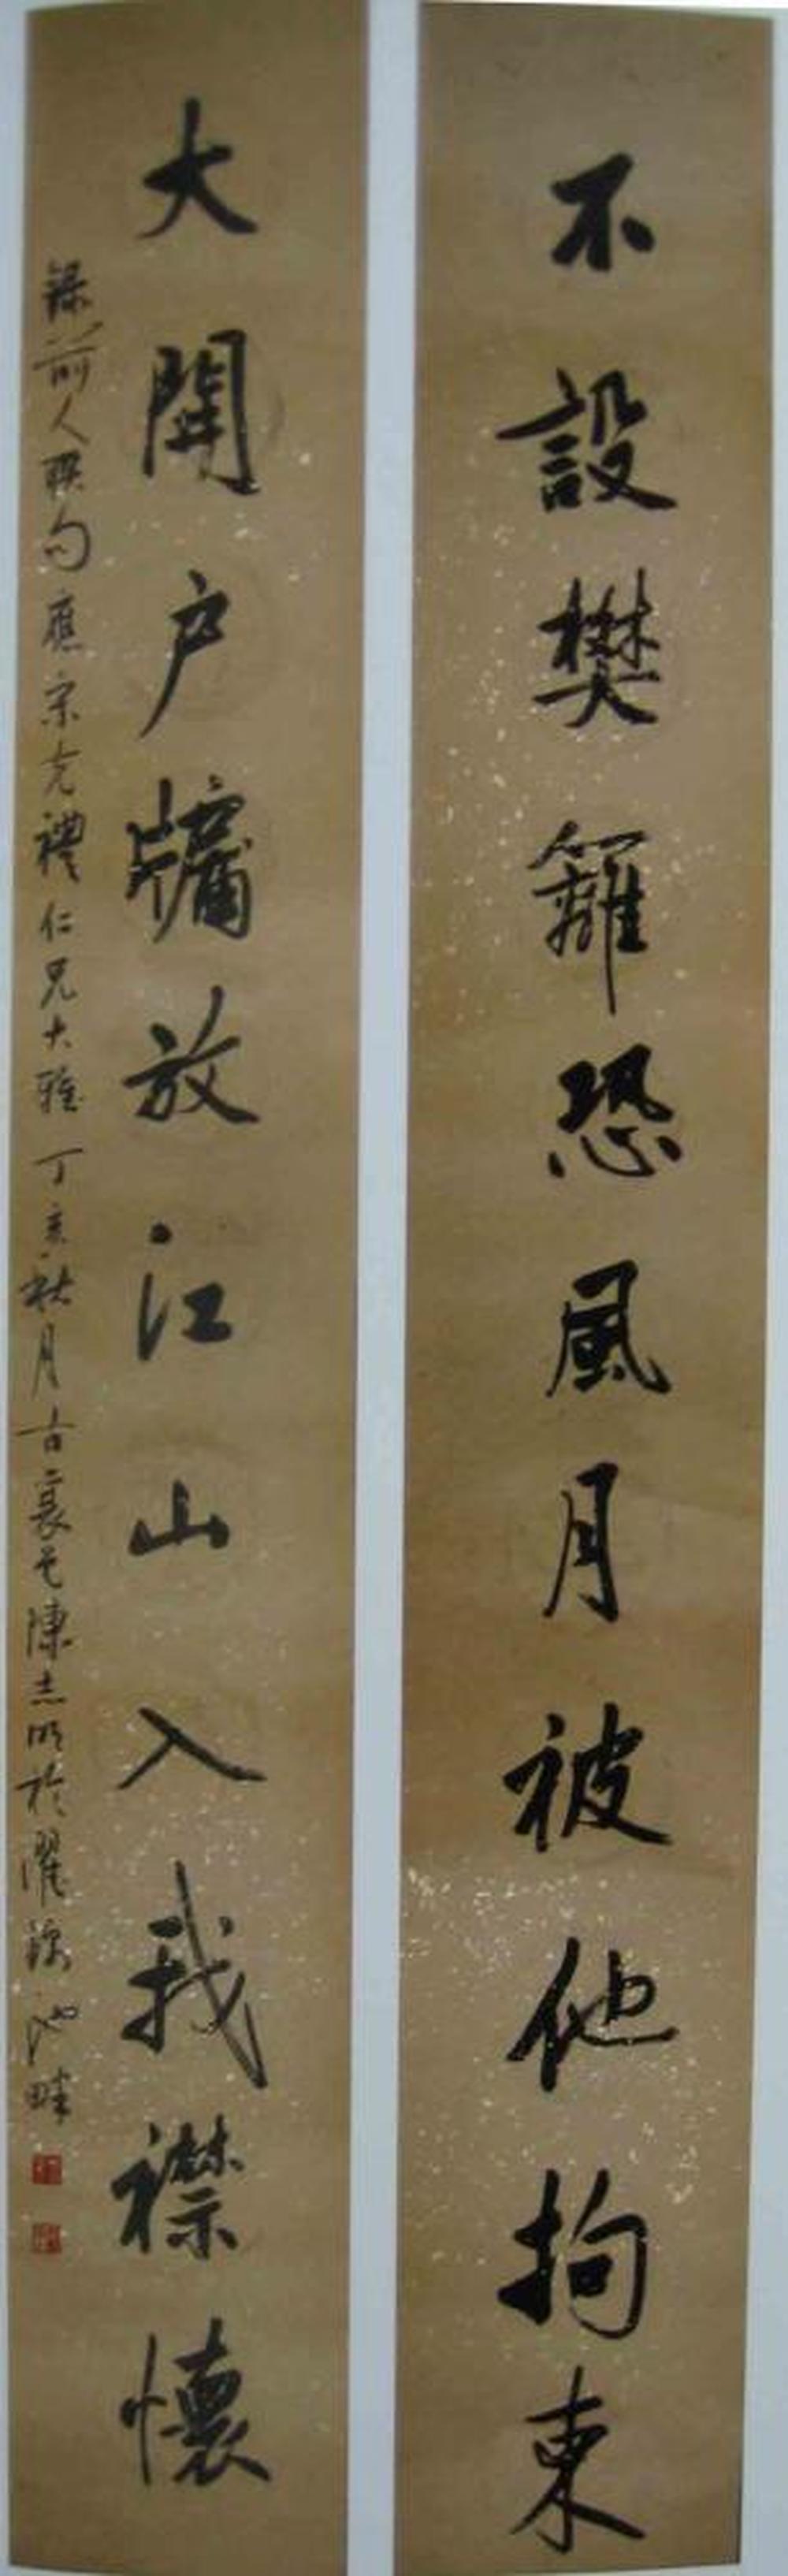 不設樊籬恐風月被他拘束
大開户牖放江山入我襟懷
錄前人聯句應宗克禮仁兄大雅丁亥秋月古襄邑陳志明於濯錦池畔